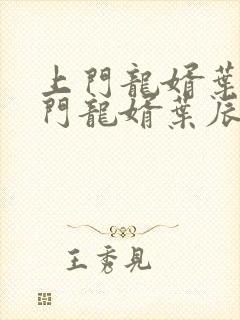 上門龍婿葉
門龍婿葉辰
王秀見